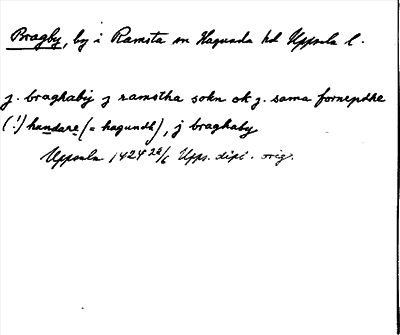 Bragby, by i Ramsta sn Hagunda hd Uppsala l.
j. braghabij j ramstha sokn ok j. sama fornepdhe
(!) hundare (= hagundh), j braghaby
Uppsala 1424 22/6 Upps. dipl. orig.